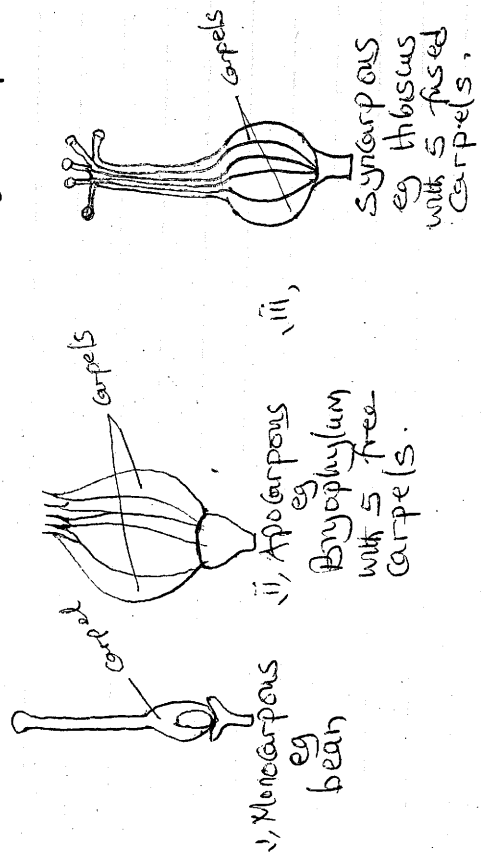 carpel
i, Monocarpous
eg
bean
carpels
ii, Apocarpous
eg
Bryophylum
with 5 free
carpels.
carpels
iii,
Syncarpous
eg Hibiscus
with 5 fused
carpels.